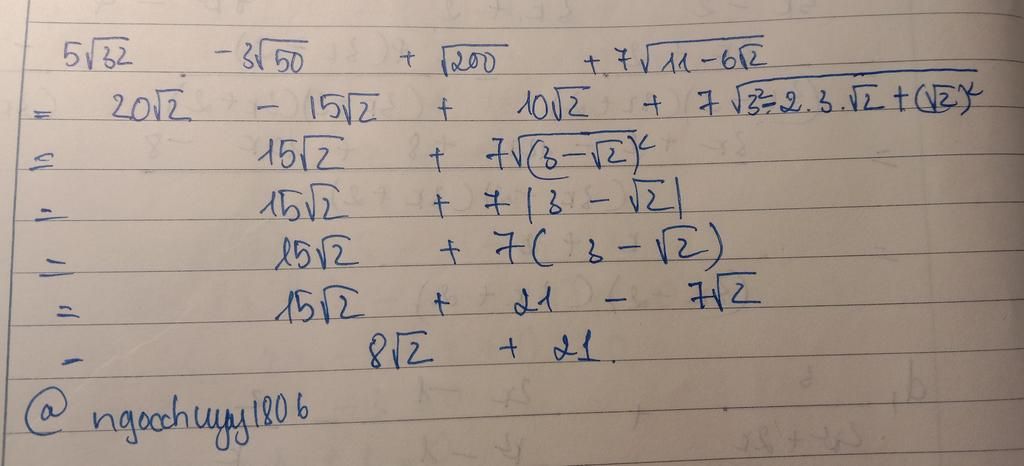 5√32 - 3√50 + √200 + 7√11 - 6√2
= 20√2 - 15√2 + 10√2 + 7√3² - 2.3.√2 + (√2)²
= 15√2 + 7√(3 - √2)²
= 15√2 + 7|3 - √2|
= 15√2 + 7(3 - √2)
= 15√2 + 21 - 7√2
= 8√2 + 21.
@ngocchuyy1806